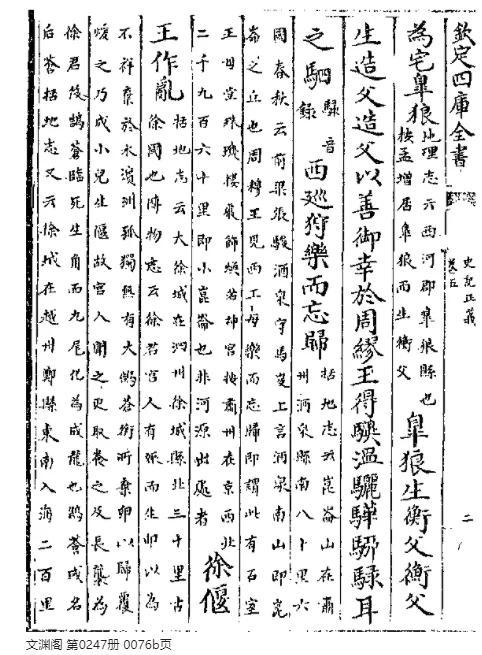 欽定四庫全書
史記正義
卷五
二
為宅皐狼
地理志云西河郡皐狼縣也
按孟增居皐狼而生衡父
皐狼生衡父衡父
生造父造父以善御幸於周繆王得驥溫驪驊駵騄耳
之駟
騄音
録
西廵狩樂而忘歸
括地志云崑崙山在肅
州酒泉縣南八十里六
國春秋云前梁張駿酒泉守馬岌上言酒泉南山即崑
崙之丘也周穆王見西王母樂而忘歸即謂此有石室
王母堂珠璣樓嚴飾煥若神宮按肅州在京西北
二千九百六十里即小崑崙也非河源出處者
徐偃
王作亂
括地志云大徐城在泗州徐城縣北三十里古
徐國也博物志云徐君宮人有娠而生卵以為
不祥棄於水濱洲孤獨無有犬鵠蒼銜所棄卵以歸覆
煖之乃成小兒生偃故宮人聞之更取養之及長襲為
徐君後鵠蒼臨死生角而九尾化為成龍也鵠蒼或名
后蒼括地志又云徐城在越州鄮縣東南入海二百里
文渊阁 第0247册 0076b页